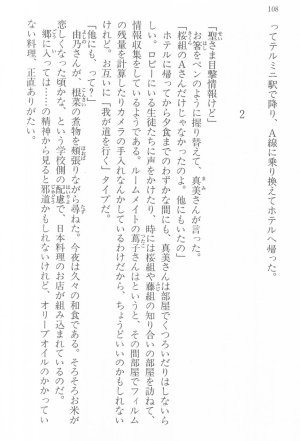 108
ってテルミニ駅で降り、A線に乗り換えてホテルへ帰った。
2
「聖さま目撃情報だけど」
お箸をペンのように握り替えて、真美さんが言った。
「桜組のAさんだけじゃなかったのよ。他にもいたの」
ホテルに帰ってから夕食までのわずかな間にも、真美さんは部屋でくつろいだりはしないらしい。ロビーにいる生徒たちに声をかけたり、時には桜組や藤組の知り合いの部屋を訪ねて、情報収集をしているようである。ルームメイトの蔦子さんはというと、その間部屋でフィルムの残量を計算したりカメラの手入れなんかしているわけだから、ちょうどいいのかもしれないけれど。お互いに「我が道を行く」タイプだ。
「他にも、って?」
由乃さんが、根菜の煮物を頬張りながら尋ねた。今夜は久々の和食である。そろそろお米が恋しくなった頃かな、という学校側の配慮で、日本料理のお店が組み込まれているのだ。郷に入っては――の精神から見ると邪道かもしれないけれど、オリーブオイルのかかっていない料理、正直ありがたい。